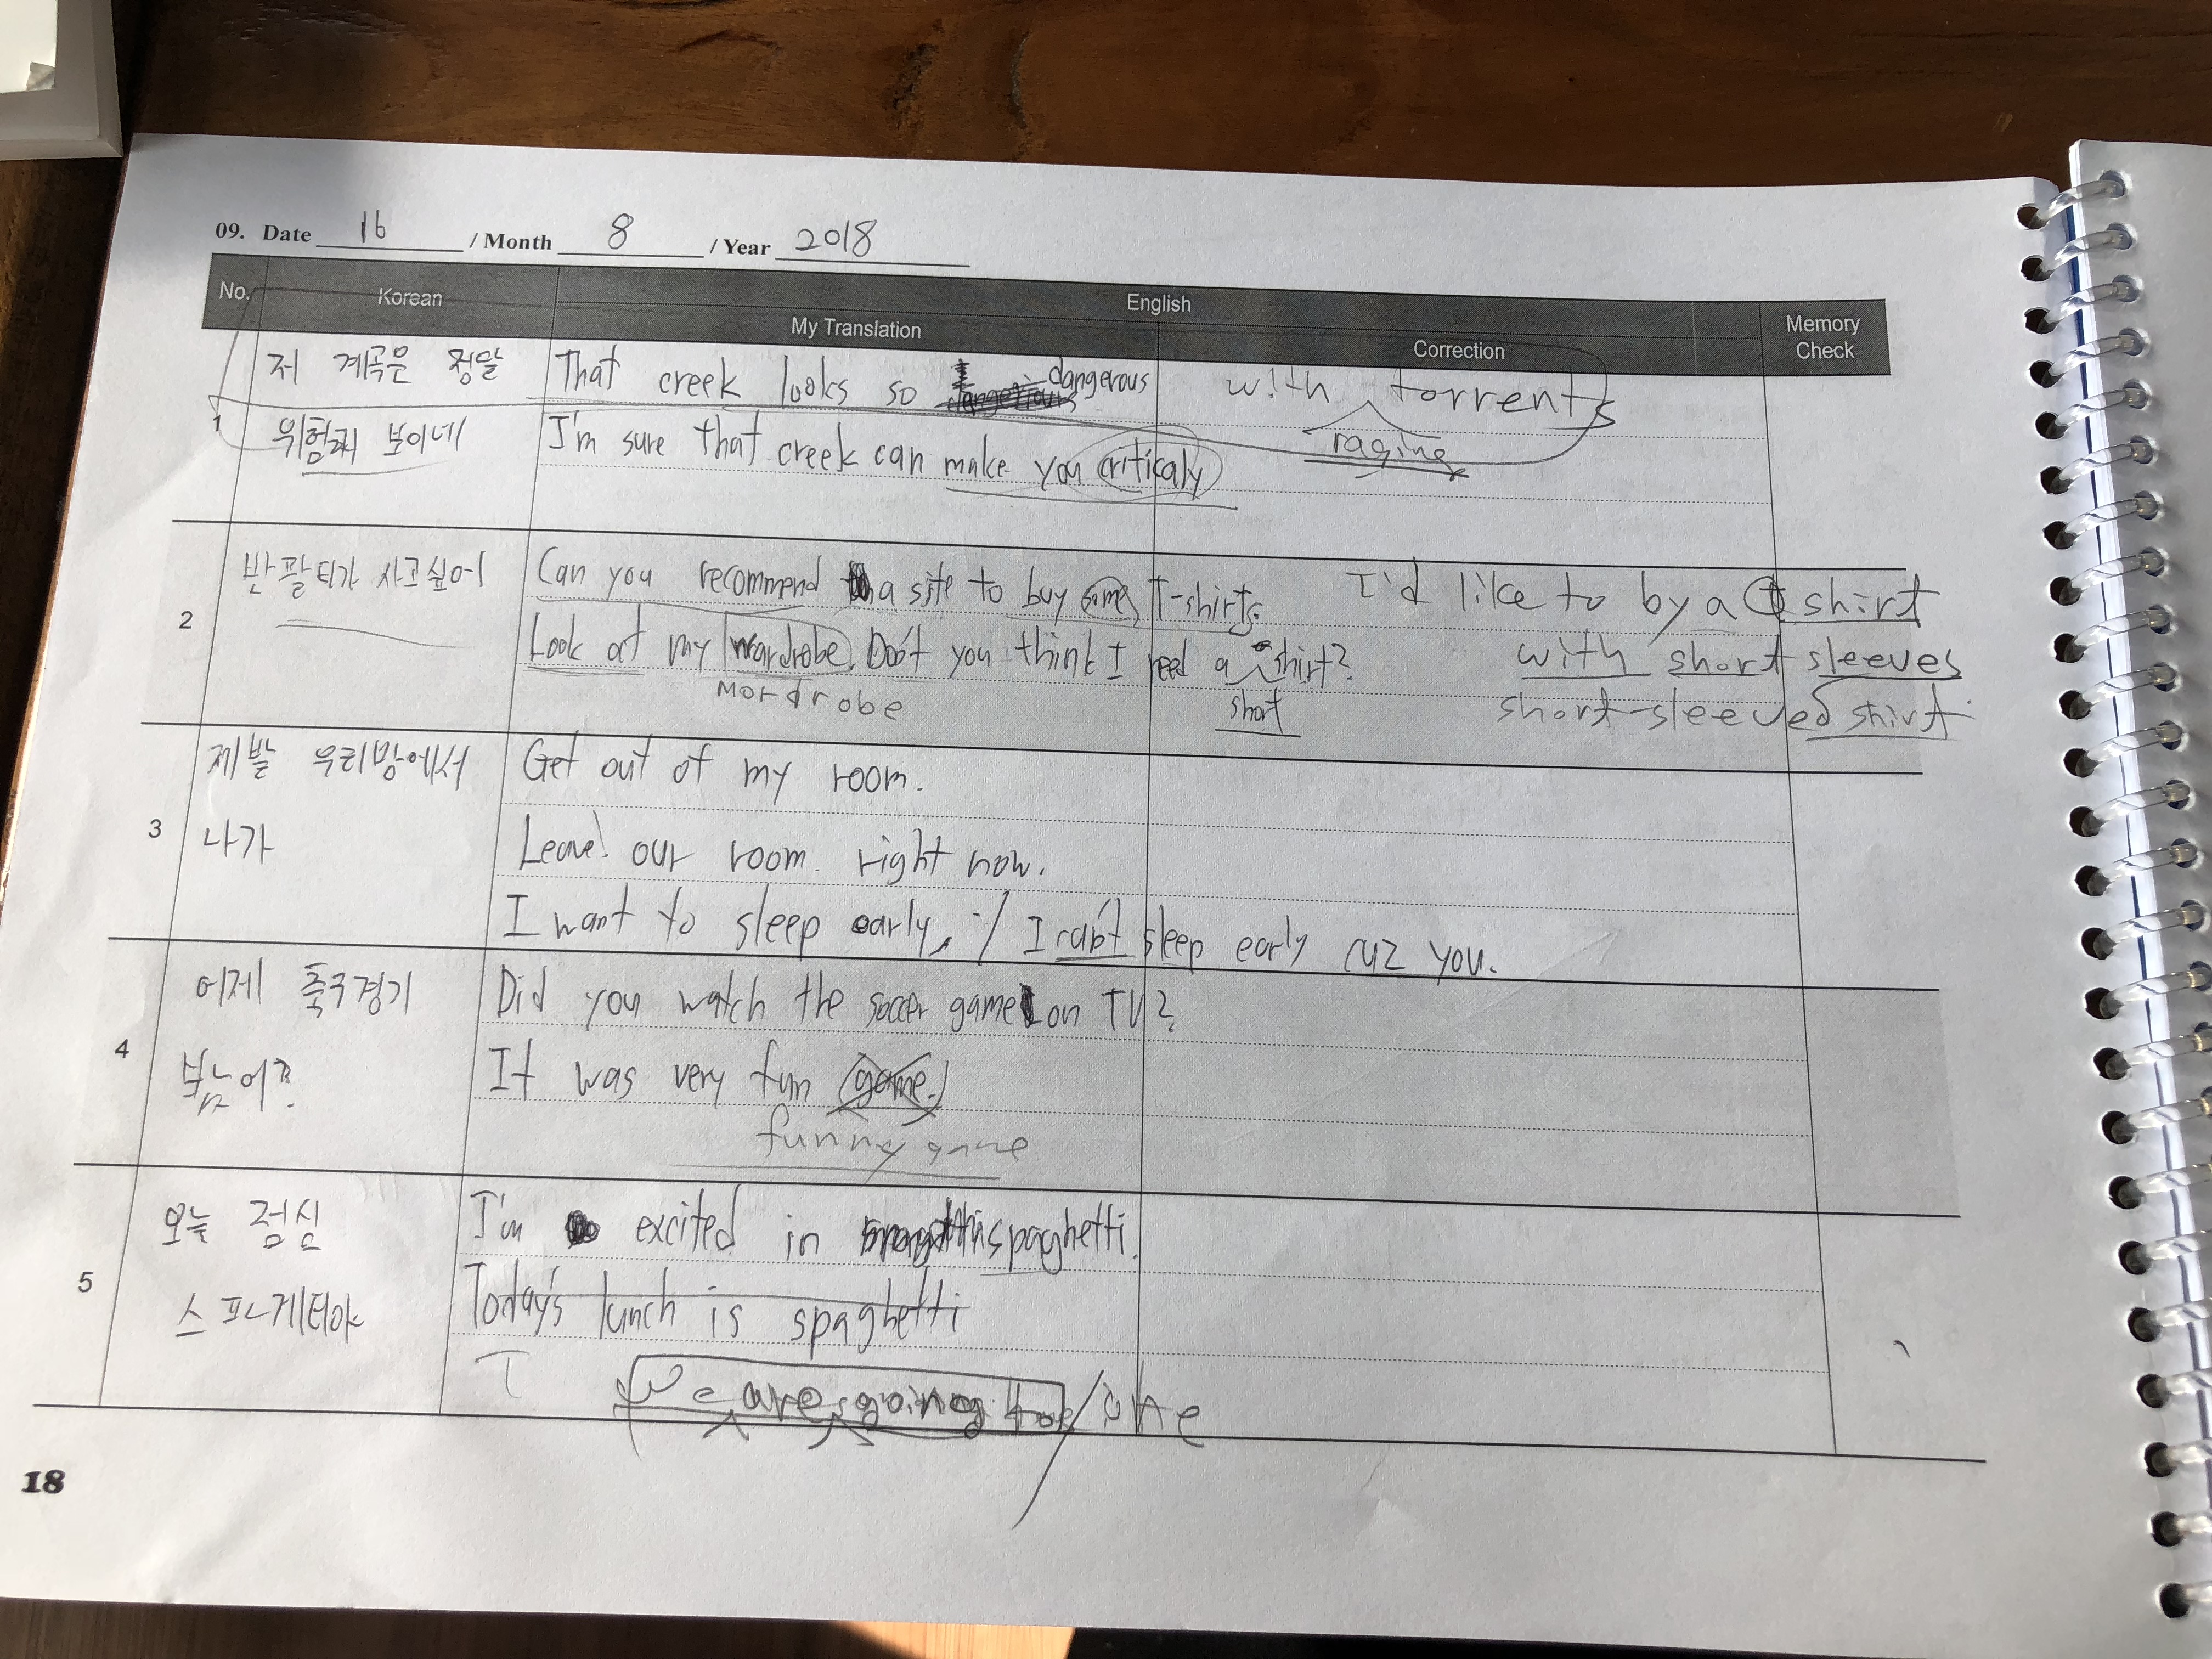 09. Date 16 / Month 8 / Year 2018
No. Korean English Memory Check
My Translation Correction
1
저 계곡은 정말
위험해 보이네
That creek looks so dangerous
with raging torrents
I'm sure that creek can make you criticaly
2
반팔티가 사고싶어
Can you recommend a site to buy some T-shirts.
Look at my wardrobe. Don't you think I need a short shirt?
wordrobe
I'd like to by a t shirt
with short sleeves
short-sleeved shirt
3
제발 우리방에서
나가
Get out of my room.
Leave! our room. right now.
I want to sleep early, / I can't sleep early cuz you.
4
어제 축구경기
봤어?
Did you watch the soccer game on TV?
It was very fun game.
funny game
5
오늘 점심
스파게티야
I'm excited in this spaghetti.
Today's lunch is spaghetti
We are going to
18